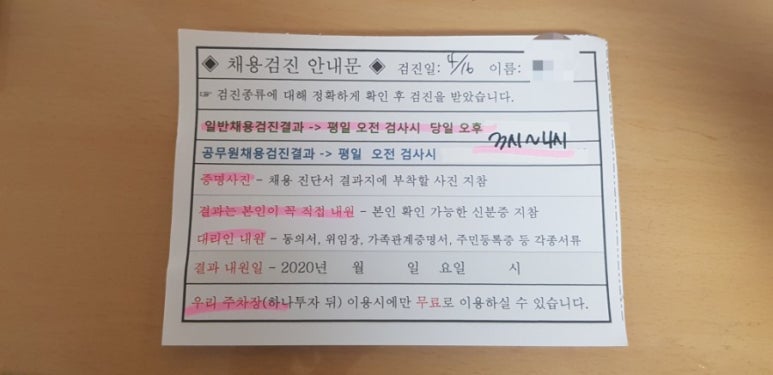 ◈ 채용검진 안내문 ◈ 검진일: 4/16 이름:
☞ 검진종류에 대해 정확하게 확인 후 검진을 받았습니다.
일반채용검진결과 -> 평일 오전 검사시 당일 오후
3시~4시
공무원채용검진결과 -> 평일 오전 검사시
증명사진 - 채용 진단서 결과지에 부착할 사진 지참
결과는 본인이 꼭 직접 내원 - 본인 확인 가능한 신분증 지참
대리인 내원 - 동의서, 위임장, 가족관계증명서, 주민등록증 등 각종서류
결과 내원일 - 2020년 월 일 요일 시
우리 주차장(하나투자 뒤) 이용시에만 무료로 이용하실 수 있습니다.